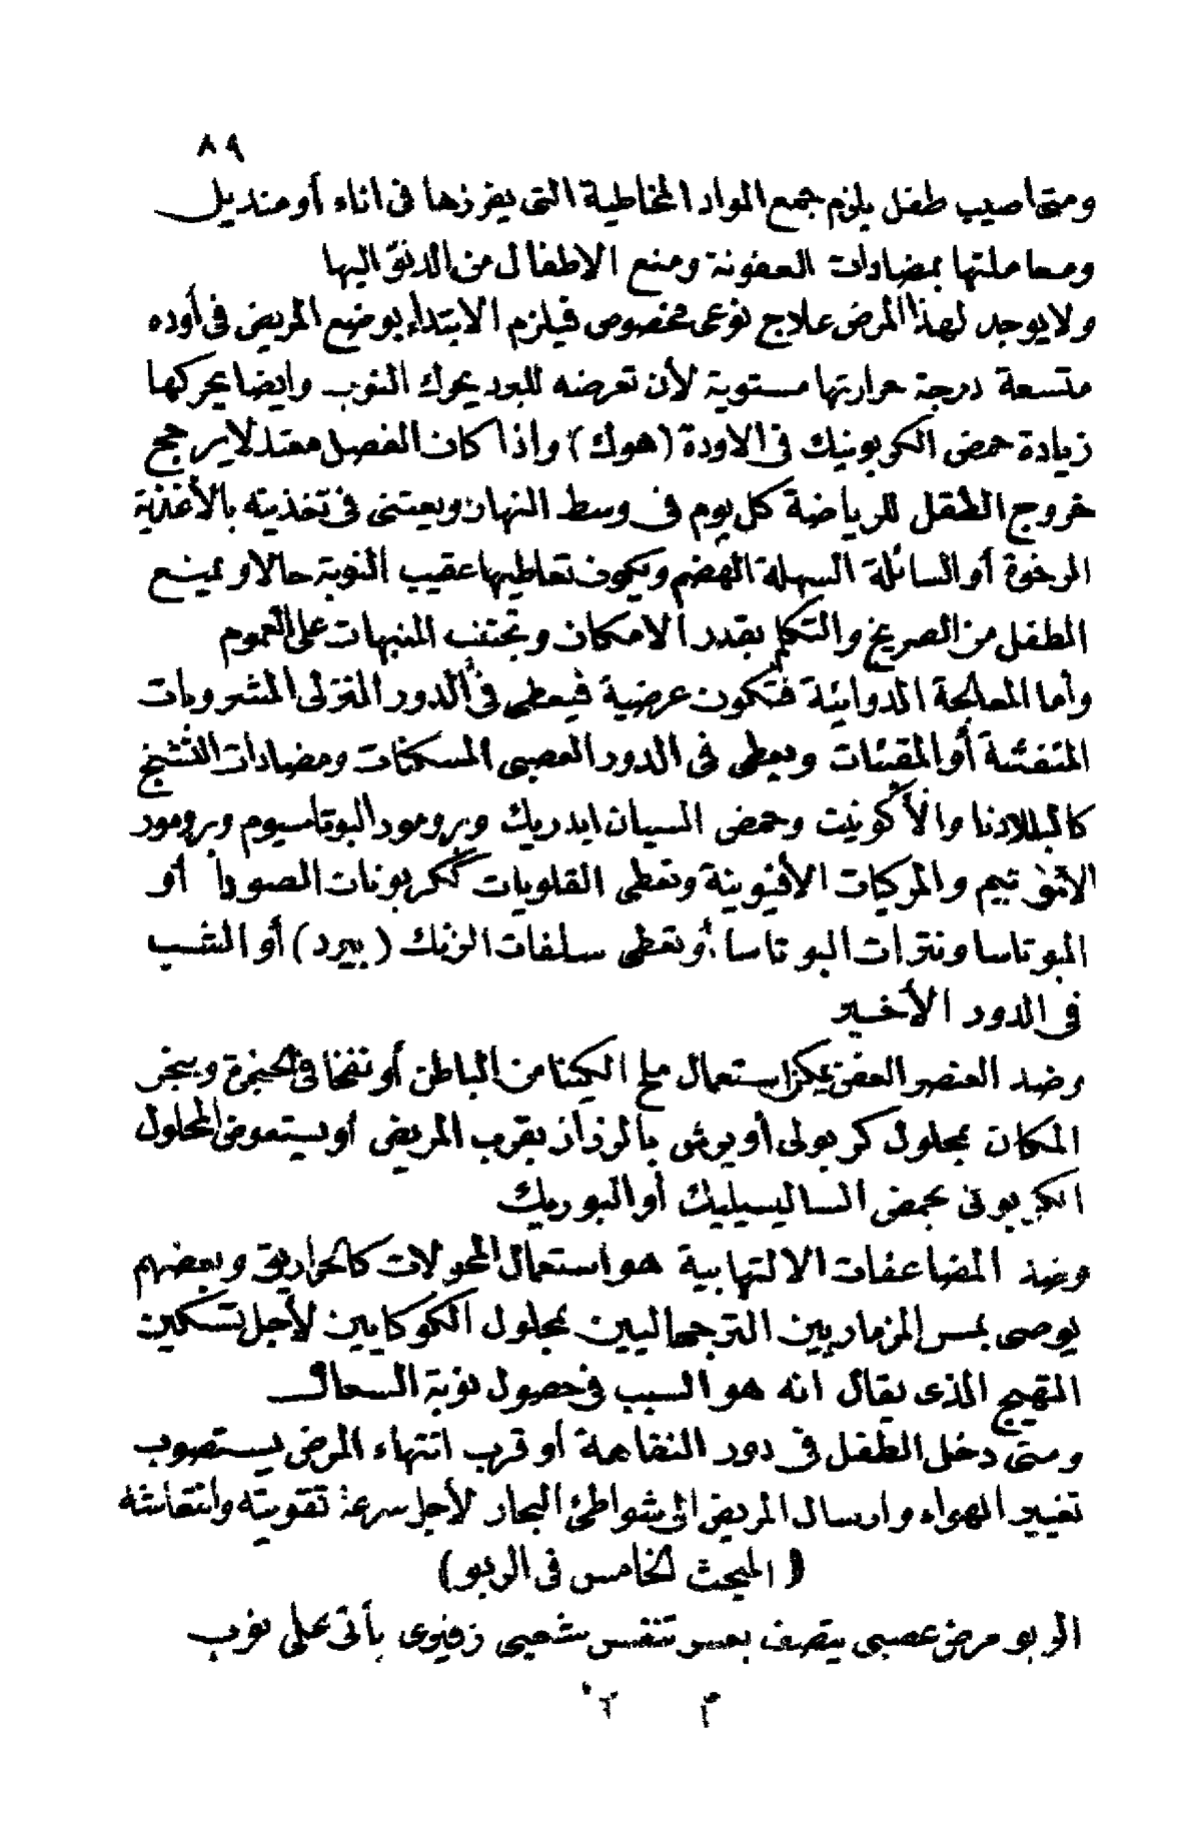 ٨٩
ومتى اصيب طفل يلزم جمع المواد المخاطية التى يفرزها فى اناء أو منديل
ومعاملتها بمضادات العفونة ومنع الاطفال من الدنوّ اليها
ولا يوجد لهذا المرض علاج نوعى مخصوص فيلزم الابتداء بوضع المريض فى أوده
متسعة درجة حرارتها مستوية لأن تعرضه للبرد يحرك النوب وايضا يحركها
زيادة حمض الكربونيك فى الاودة (هوك) واذا كان الفصل معتدلا يرجح
خروج الطفل للرياضة كل يوم فى وسط النهار ويعتنى فى تغذيته بالأغذية
الرخوة أو السائلة السهلة الهضم ويكون تعاطيها عقيب النوبة حالا ويمنع
الطفل من الصريخ والتكلم بقدر الامكان وتجتنب المنبهات على العموم
وأما المعالجة الدوائية فتكون عرضية فيعطى فى الدور النزلى المشروبات
المنفثة أو المقيئات ويعطى فى الدور العصبى المسكنات ومضادات التشنج
كالبللادنا والأكونيت وحمض السيان ايدريك وبرومور البوتاسيوم وبرومور
والمركبات الأفيونية وتعطى القلويات ككربونات الصودا أو
البوتاسا ونترات البوتاسا أو تعطى سلفات الزنك (بيرد) أو الشب
فى الدور الأخير
وضد العنصر العفن يمكن استعمال ملح الكينا من الباطن أو نفخا فى الحنجرة ويبخر
المكان بمحلول كربولى أو يرش بالرزاز بقرب المريض أو يستعوض المحلول
الكربولى بحمض الساليسيليك أو البوريك
وضد المضاعفات الالتهابية هو استعمال المحولات كالحراريق وبعضهم
يوصى بمس المزماريين الترجهاليين بمحلول الكوكايين لأجل تسكين
التهيج الذى يقال انه هو السبب فى حصول نوبة السعال
ومتى دخل الطفل فى دور النقاهة أو قرب انتهاء المرض يستصوب
تغيير الهواء وارسال المريض الى شواطئ البحار لأجل سرعة تقويته وانتعاشه
(المبحث الخامس فى الربو)
الربو مرض عصبى يتصف بعسر تنفس شحيحى زفيرى يأتى على نوب
م ٢